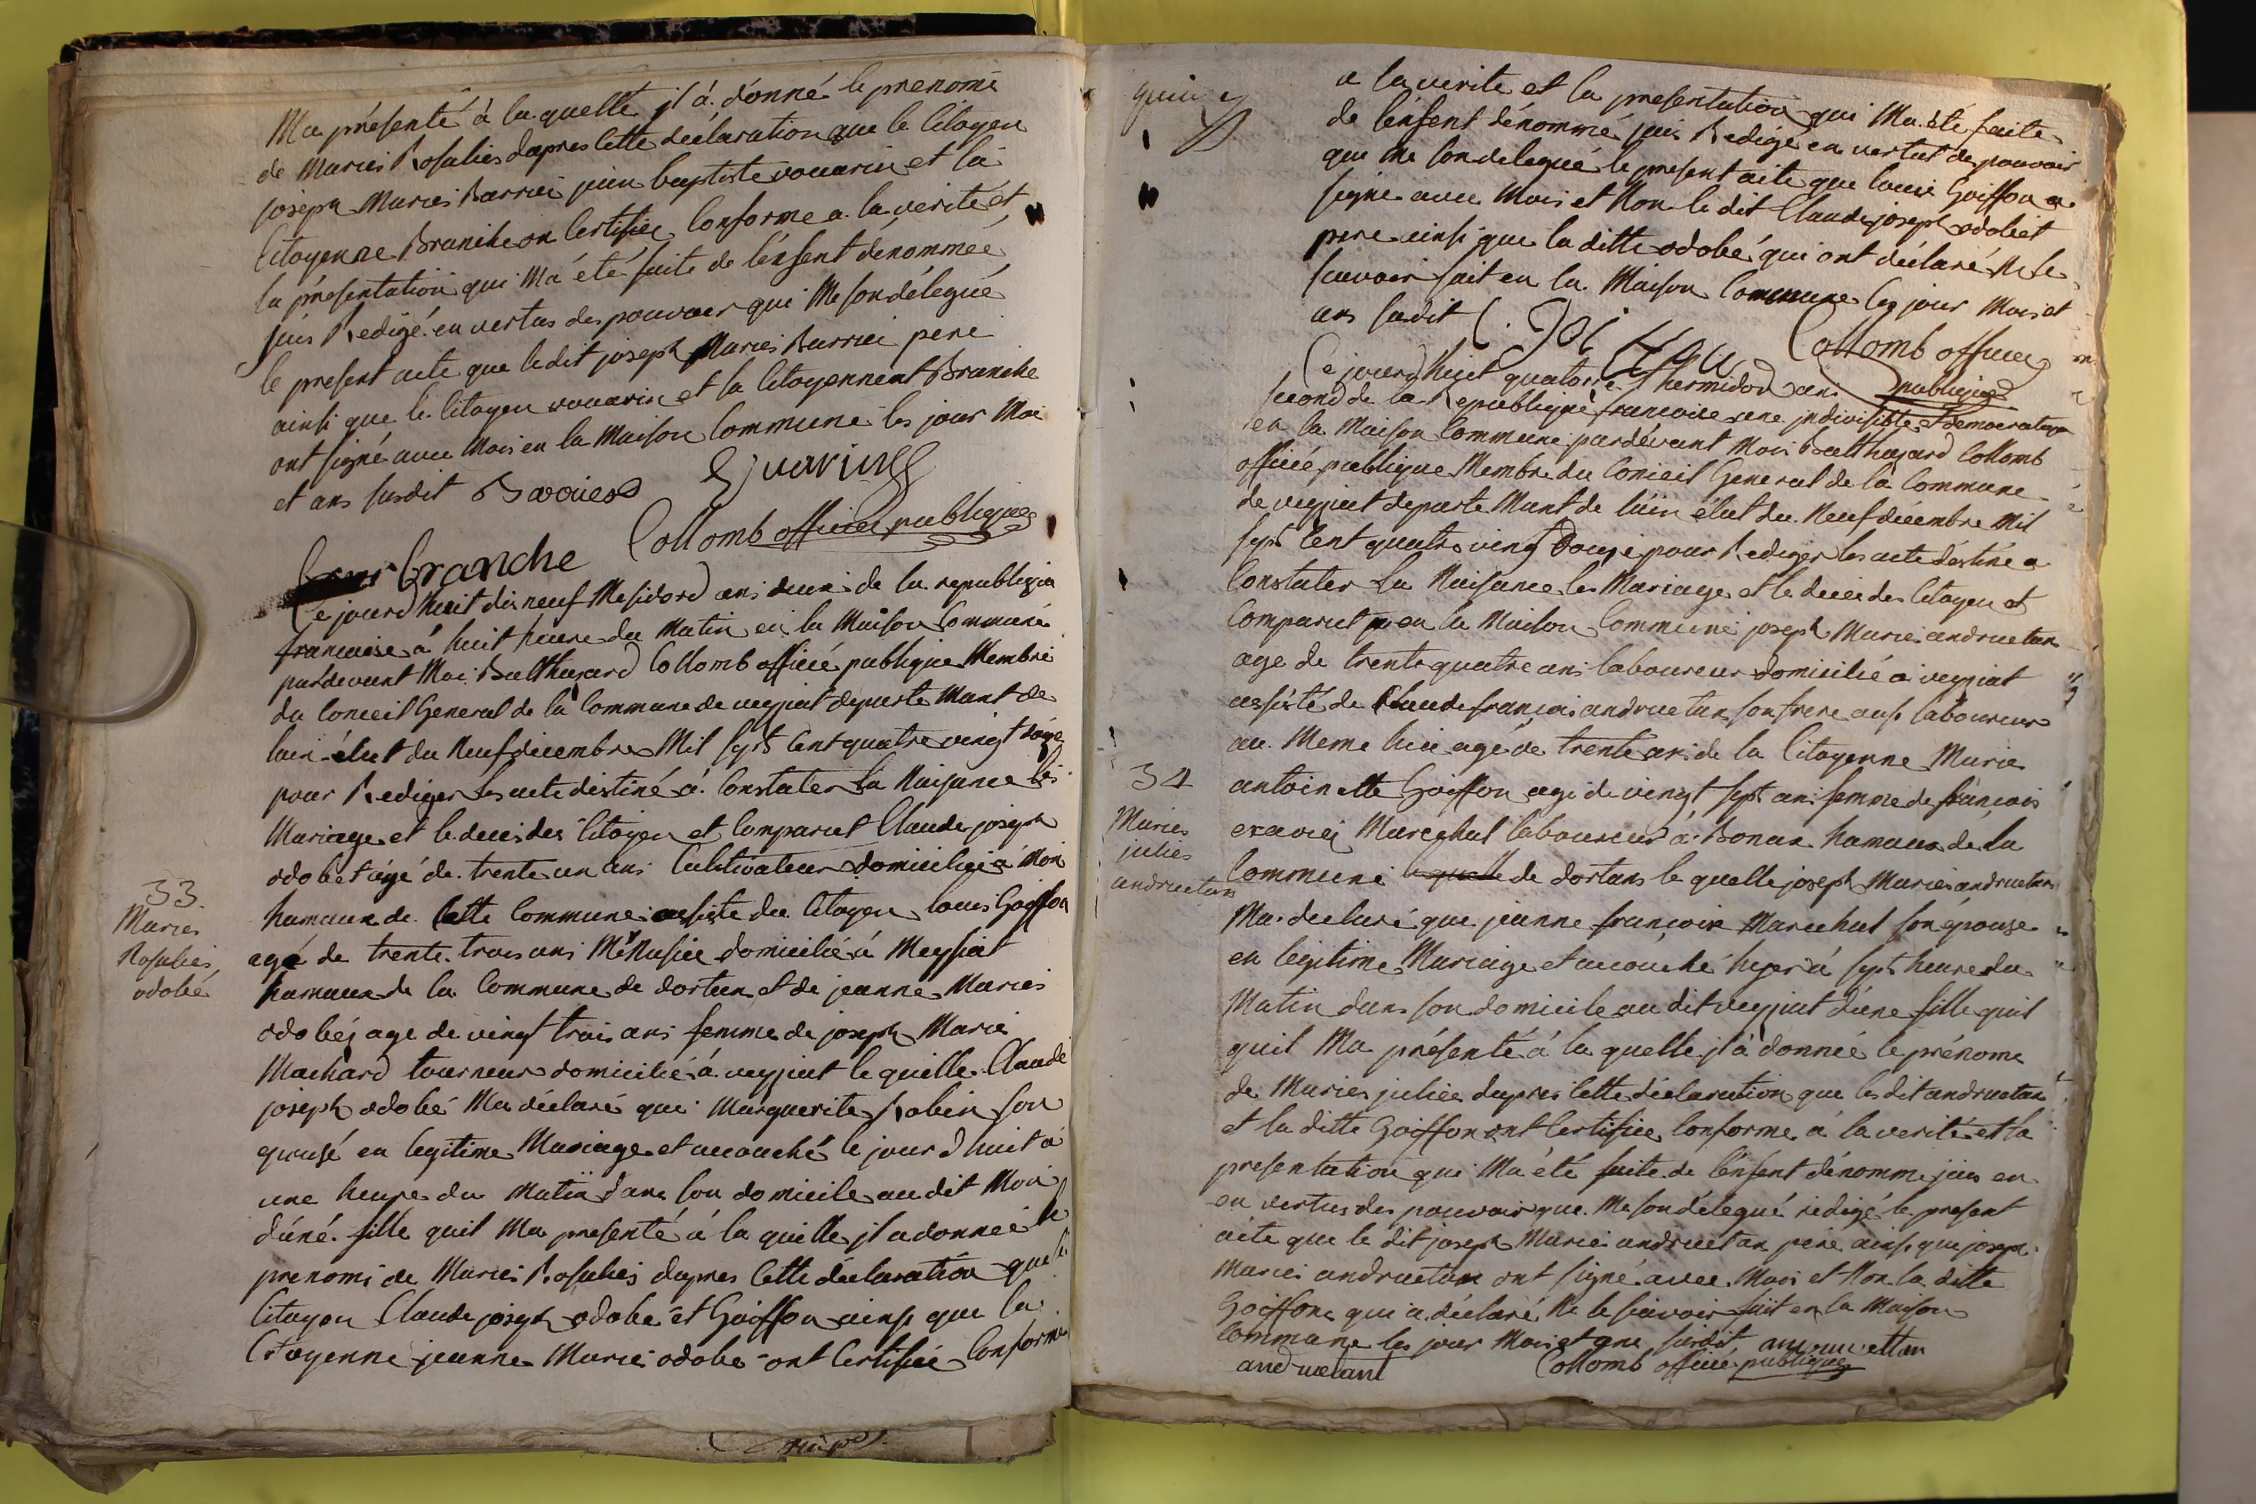 Ma présenté à la quelle jl á donné le prenome
de Maries Rosalies dapres cette declaration que le Citoyen
joseph Maries Barriei jean baptiste vouarin et la
Citoyenne Branche on Certifiee Conforme a la vérité et
la présentation qui Ma été faite de l'énfent dénommée
jais Redigé en vertus des pouvoier qui Me son délegué
le present acte que ledit joseph Maries Barriei pere
ainsi que le Citoyen vouarin et la Citoyennent Branche
ont signé avec Mois en la Maison Commune les jour Moi
et ans susdit Baroues Evarin
Collomb officier publique
branche
Ce jourd huit dis neuf Mesidord ans deux de la republique
francaise á huit heure du Matin en la Maison Commune
pardevant Moi Balthazard Collomb officié publique Membre
du Conceil General de la Commune de veyziat departe Mant de
lain élut du Neuf décembre Mil sept Cent quatre vingt douze
pour Rediger les acte destiné á Constater la Naisance les
Mariage et le decei des Citoyen et Comparut Claude joseph
odobet ágé de trente un ans Cultivateur domicilié á Mon
33.
Maries
Rosalies
odobé
hamaux de Cette Commune assiste du Citoyen louis Goiffon
agé de trente trois ans Menusiée domicilié á Meyssiat
hamaux de la Commune de dortan et de jeanne Maries
odobéz age de vingt trois ans femme de joseph Marie
Machard tourneur domicilié á veyziat le quelle Claude
joseph odobé Ma déclaré que Marguerite Robin son
epousé en legitime Mariage et acouché le jour d huit á
une heure du Matin dans son domicile au dit Mon
d'une fille quil Ma presenté á la quelle jl a donneé le
prenomi de Maries Rosalies dapres Cette déclaration que le
Citoyen Claude joseph odobé et Goiffon ainsi que la
Citoyenne jeanne Marie odobé ont Certifiée Conforme
a la verite et la presentation qui Ma été faite
de l'énfent dénommé jais Redigé en vertut des pouvoir
que Me son delegué le present acte que louis Goiffon a
signe avec Mois et Non le dit Claude joseph odobet
pere ainsi que la ditte odobé qui ont déclaré Ne le
savoir fait en la Maison Commune les jour Mois et
ans susdit Collomb officier
publique
Ce jourd huit quatorze thermidord ans
second de la Republique francaise une jndivisible et democratique
en la Maison Commune pardévant Moi Balthazard Collomb
officiée publique Membre du Conceil General de la Commune
de veyziat departe Mant de lain élut du Neuf décembre Mil
sept Cent quatre vingt douze pour Rediger les acte déstiné a
Constater la Naisance les Mariage et le decei des Citoyen et
Comparut en la Maison Commune joseph Marie andruetan
age de trente quatre ans laboureur domicilié á veyziat
assisté de Claude francois andruetan son frere aussi laboureur
au Meme lieu agé de trente ans de la Citoyenne Marie
34
Maries
julies
andruetan
antoinette Goiffon agé de vingt sept ans femme de francois
exavier Marechal laboureur á Bonaz hamaux de la
Commune de dortans le quelle joseph Marie andruetan
Ma declaré que jeanne francoise Marechal son épouse
en legitime Mariage et acouché hyer á sept heure du
Matin dans son domicile au dit veyziat d'une fille quil
quil Ma présenté á la quelle jl á donnée le prénome
de Maries juliée dapres Cette déclaration que les dit andruetan
et la ditte Goiffon ont Certifiée Conforme á la verité et la
presentation qui Ma été faite de l'énfent dénomme jais en
en vertus des pouvoir que Me son délegué redigé le present
acte que le dit joseph Maries andruetan pére ainsi que joseph
Maries andruetan ont signé avec Mois et Non la ditte
Goiffone qui a déclaré Ne le savoir fait en la Maison
Commune les jour Mois et ans susdit
andruetant Collomb officié publique